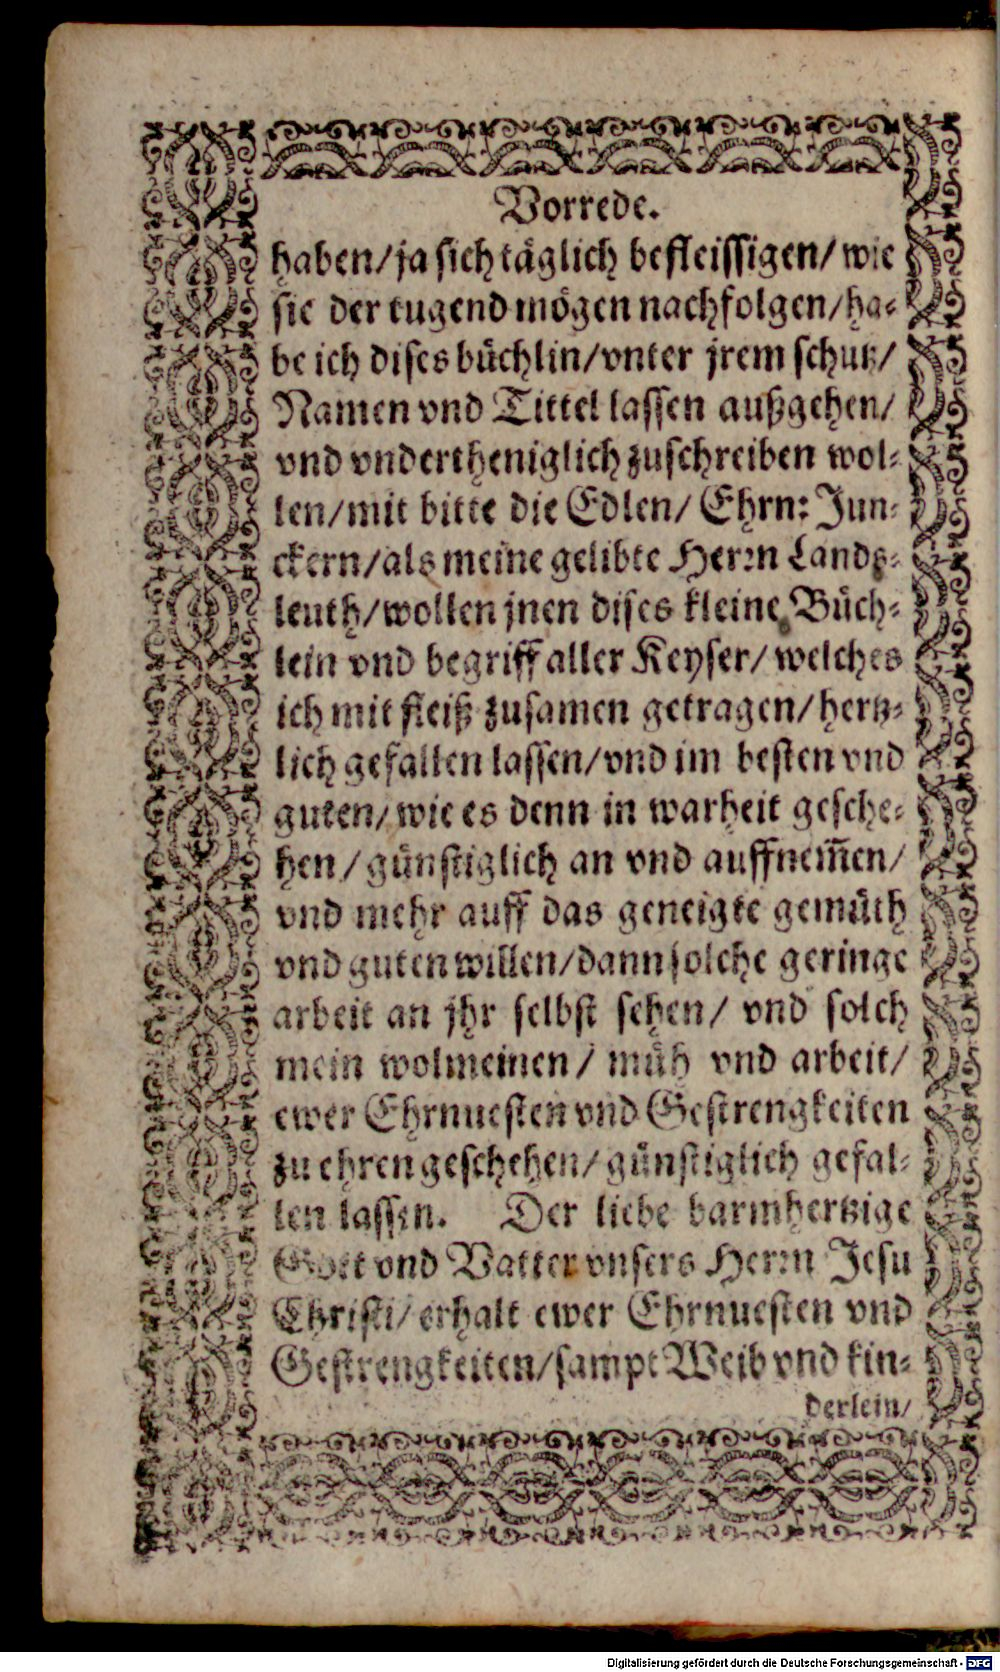 Vorrede.
haben/ ja sich täglich befleissigen/ wie
sie der tugend mögen nachfolgen/ ha-
be ich dises büchlin/ vnter jrem schutz/
Namen vnd Tittel lassen außgehen/
vnd vndertheniglich zuschreiben wol-
len/ mit bitte die Edlen/ Ehrn: Jun-
ckern/ als meine gelibte Herrn Lands-
leuth/ wollen jnen dises kleine Büch-
lein vnd begriff aller Keyser/ welches
ich mit fleiß zusamen getragen/ hertz-
lich gefallen lassen/ vnd im besten vnd
guten/ wie es denn in warheit gesche-
hen/ günstiglich an vnd auffnem̃en/
vnd mehr auff das geneigte gemüth
vnd guten willen/ dann solche geringe
arbeit an jhr selbst sehen/ vnd solch
mein wolmeinen/ müh vnd arbeit/
ewer Ehrnuesten vnd Gestrengkeiten
zu ehren geschehen/ günstiglich gefal-
len lassen. Der liebe barmhertzige
Gott vnd Vatter vnsers Herrn Jesu
Christi/ erhalt ewer Ehrnuesten vnd
Gestrengkeiten/ sampt Weib vnd kin-
derlein/
Digitalisierung gefördert durch die Deutsche Forschungsgemeinschaft - DFG